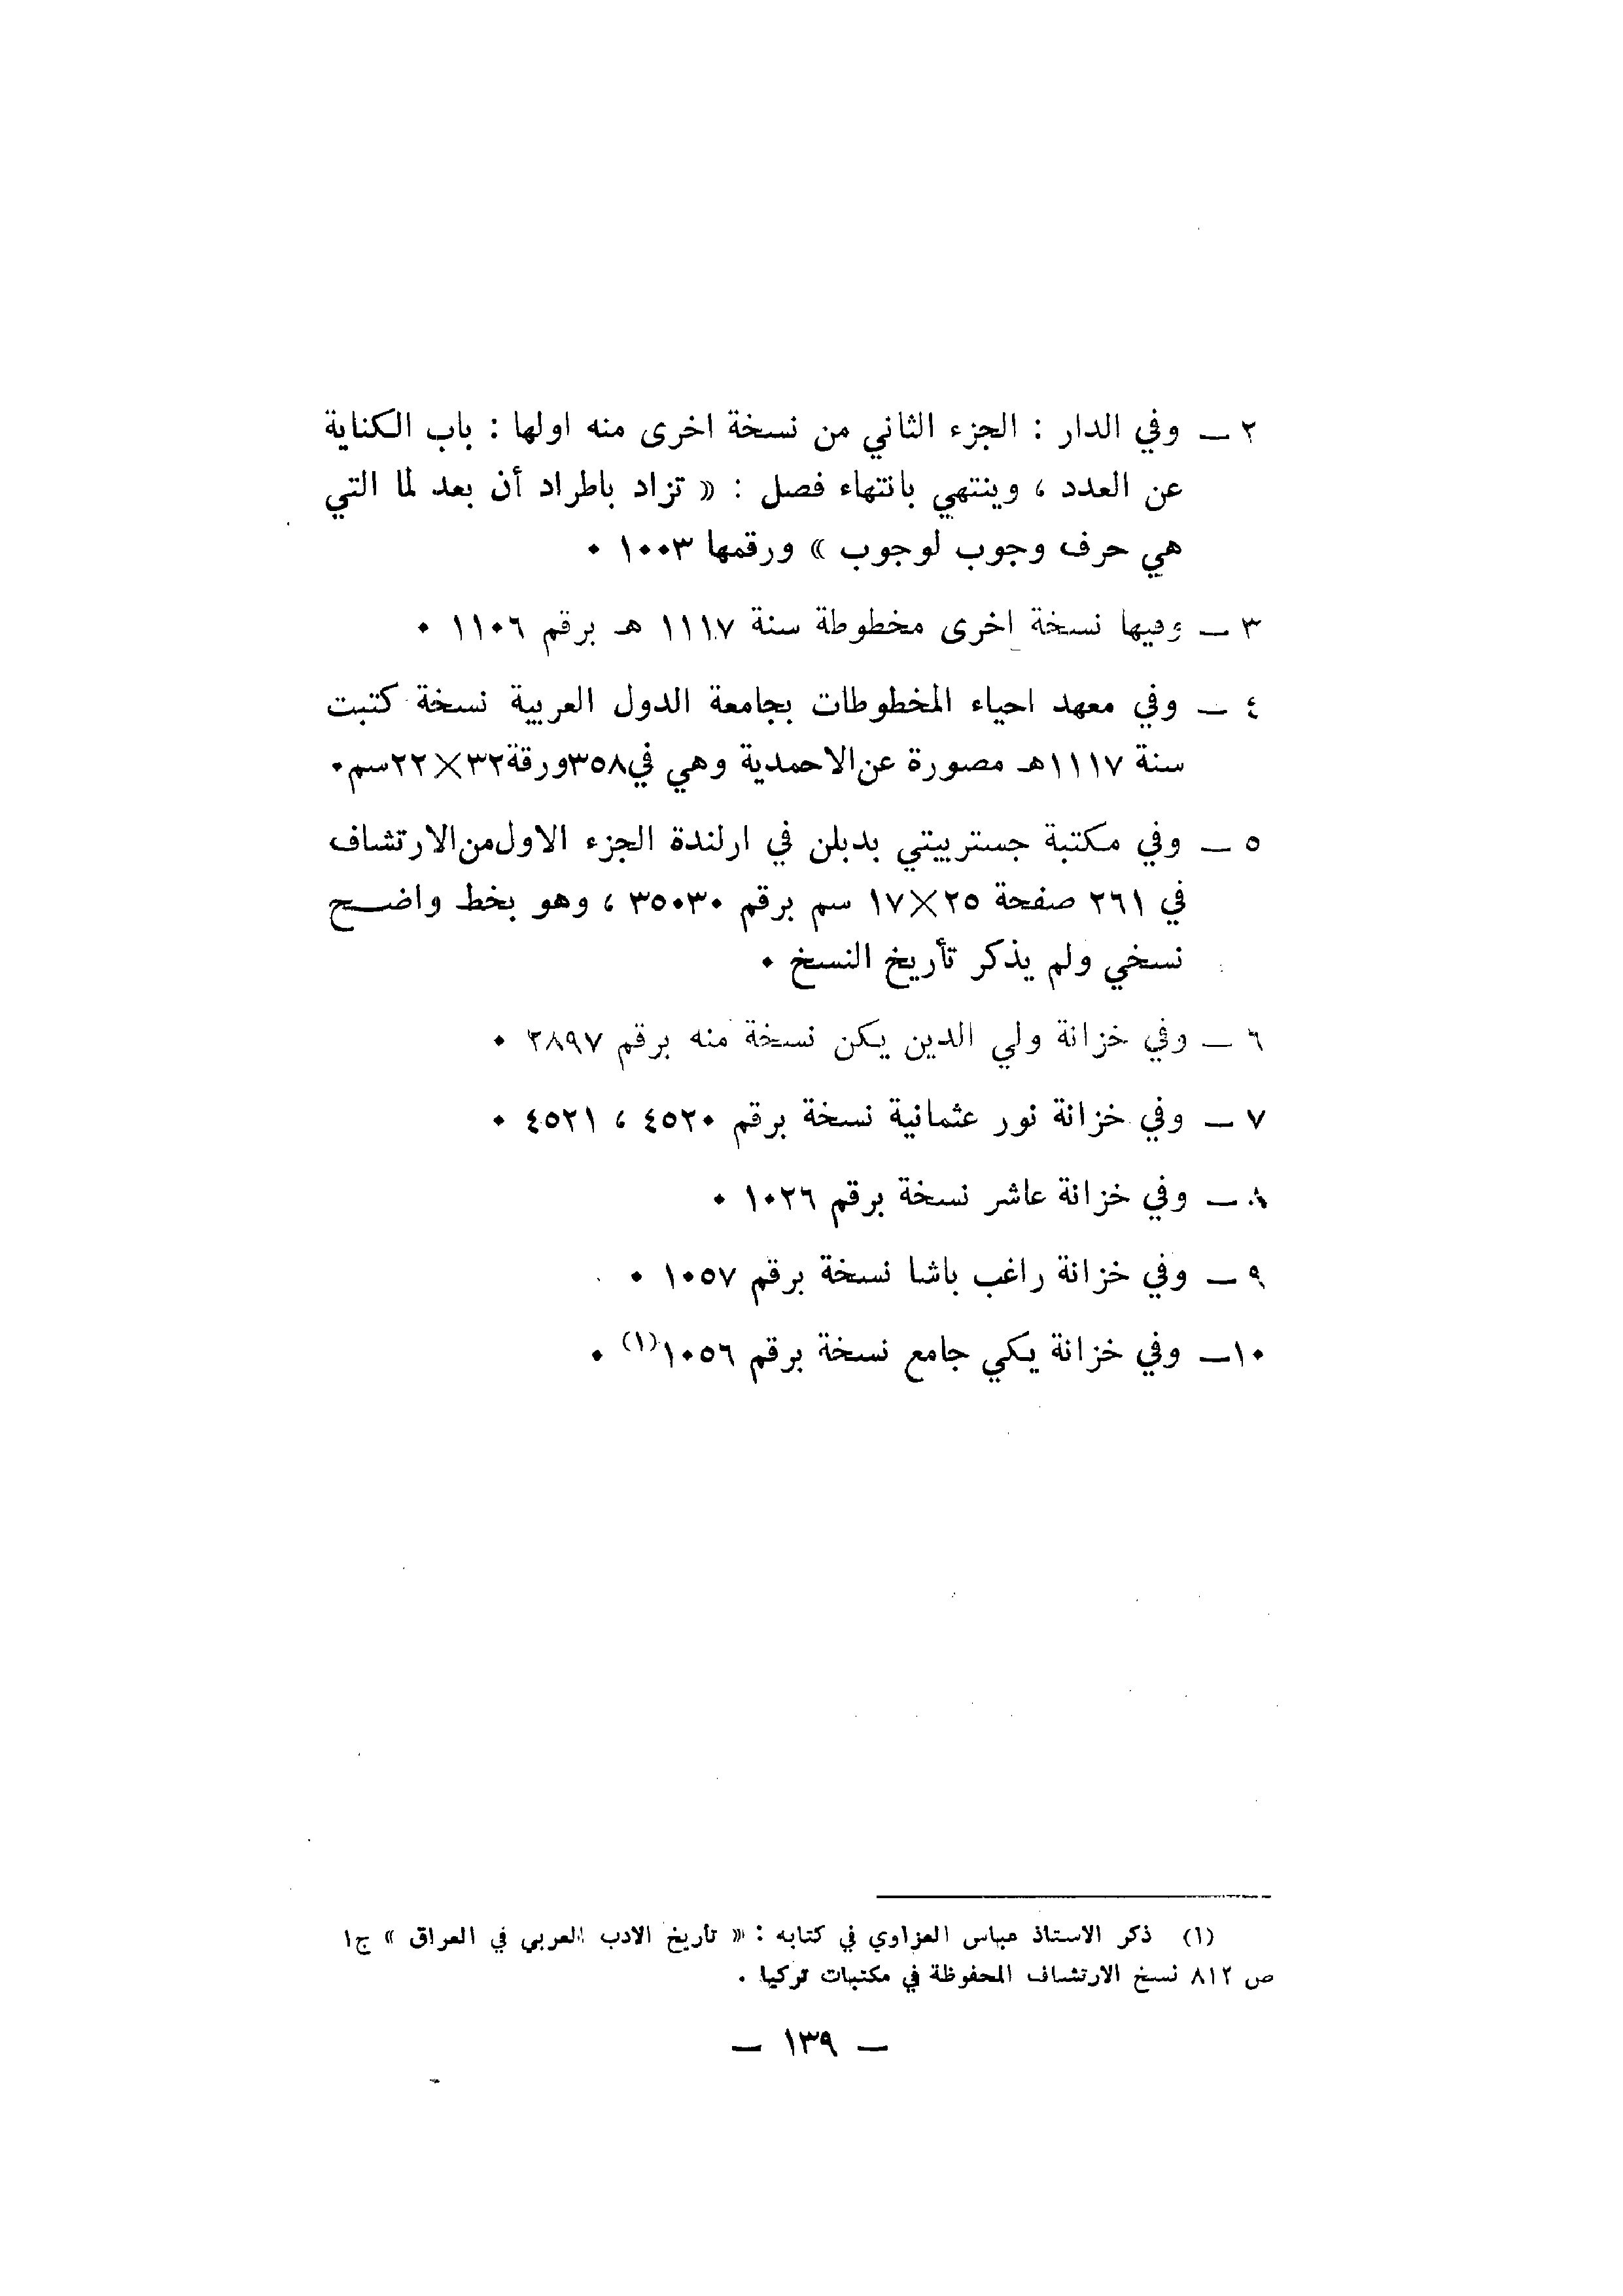 ٢ — وفي الدار : الجزء الثاني من نسخة اخرى منه اولها : باب الكناية
عن العدد ، وينتهي بانتهاء فصل : « تزاد باطراد أن بعد لما التي
هي حرف وجوب لوجوب » ورقمها ١٠٠٣ ٠
٣ — وفيها نسخة اخرى مخطوطة سنة ١١١٧ هـ برقم ١١٠٦ ٠
٤ — وفي معهد احياء المخطوطات بجامعة الدول العربية نسخة كتبت
سنة ١١١٧هـ مصورة عن الاحمدية وهي في٣٥٨ورقة٣٢×٢٢سم٠
٥ — وفي مكتبة جستربيتي بدبلن في ارلندة الجزء الاول من الارتشاف
في ٢٦١ صفحة ٢٥×١٧ سم برقم ٣٥٠٣٠ ، وهو بخط واضح
نسخي ولم يذكر تأريخ النسخ ٠
٦ — وفي خزانة ولي الدين يكن نسخة منه برقم ٢٨٩٧ ٠
٧ — وفي خزانة نور عثمانية نسخة برقم ٤٥٢٠ ، ٤٥٢١ ٠
٨ — وفي خزانة عاشر نسخة برقم ١٠٢٦ ٠
٩ — وفي خزانة راغب باشا نسخة برقم ١٠٥٧ ٠
١٠— وفي خزانة يكي جامع نسخة برقم ١٠٥٦(١) ٠
(١) ذكر الاستاذ عباس العزاوي في كتابه : « تأريخ الادب العربي في العراق » ج١
ص ٨١٢ نسخ الارتشاف المحفوظة في مكتبات تركيا .
— ١٣٩ —